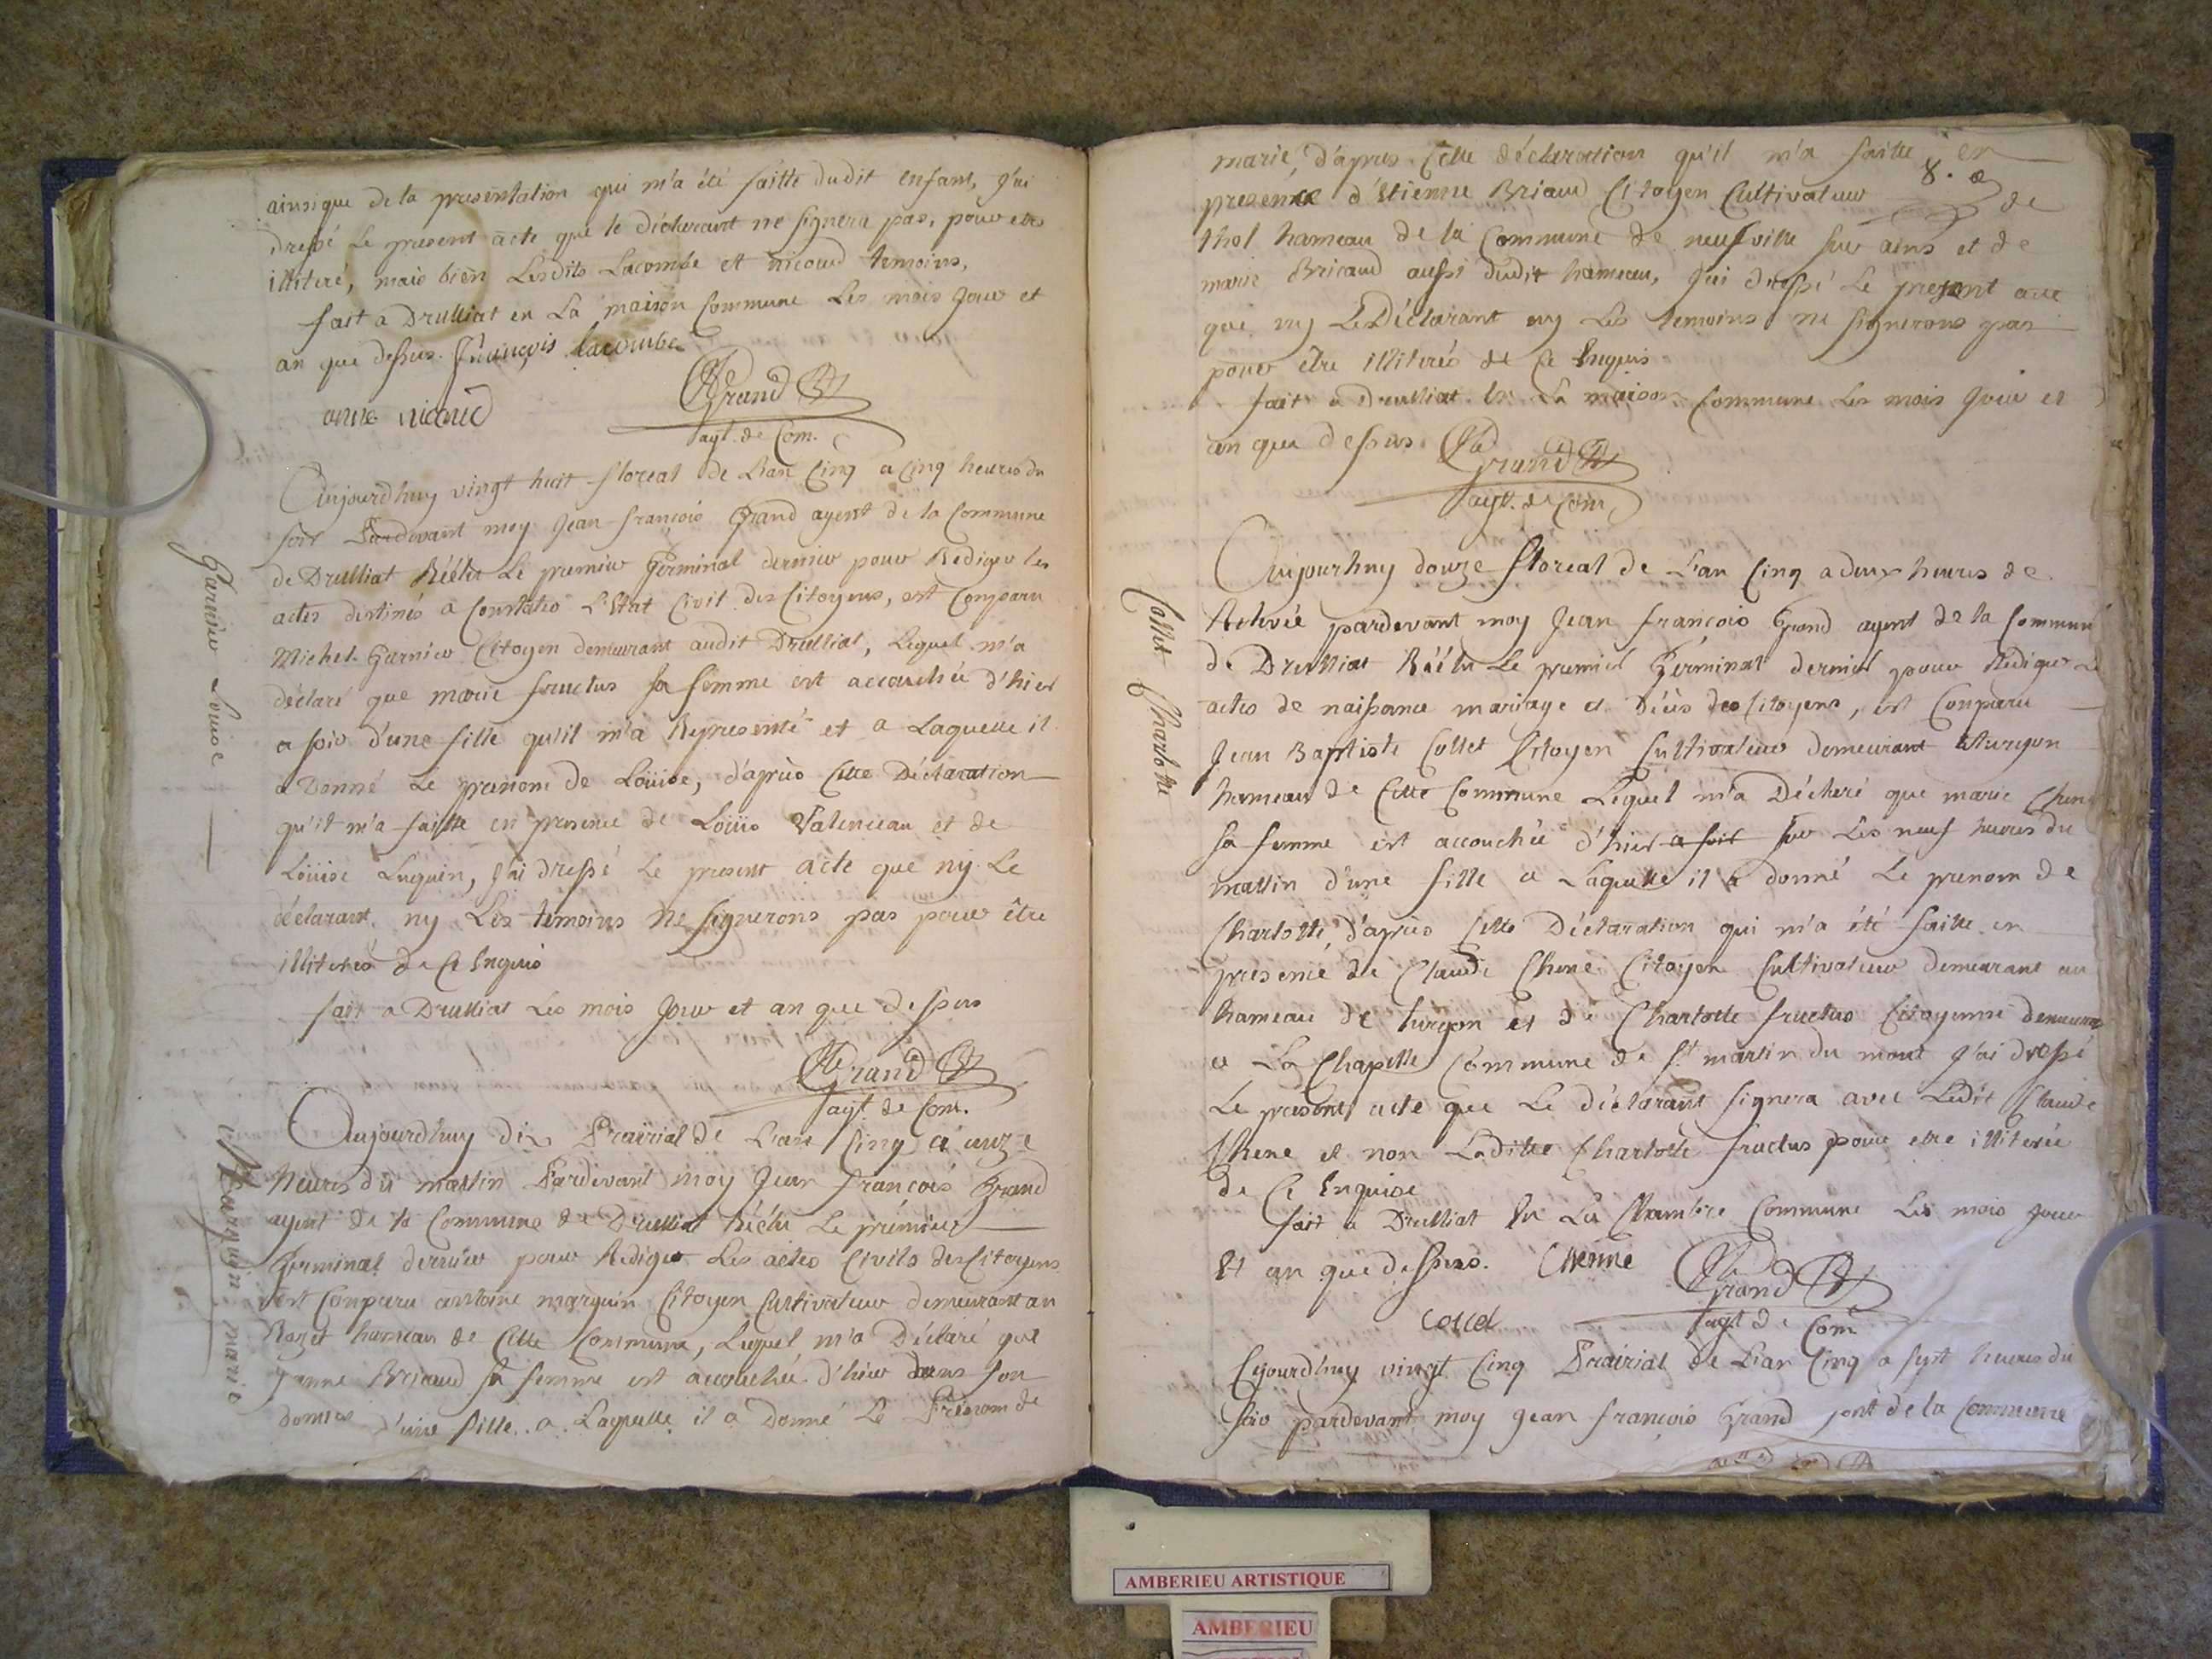 ainsi que de la presentation qui m'a été faitte dudit enfant, J'ai
dressé Le present acte que le déclarant ne signera pas, pour etre
illiteré, mais bien Lesdits Lacombe et nicoud temoins,
fait a Druillat en La maison Commune Les mois Jour et
an que dessus. françois lacombe
anne nicoud
Grand
agt. de Com.
Garnier Louise
Aujourdhuy vingt huit floreal de L'an Cinq a Cinq heures du
soir Pardevant moy Jean françois Grand agent de la Commune
de Druillat Réélu Le premier Germinal dernier pour Rediger les
actes destinés a Constater L'Etat Civil des Citoyens, est Comparu
Michel Garnier Citoyen demeurant audit Druillat, Lequel m'a
déclaré que marie fructus sa femme est accouchée d'hier
a soir d'une fille qu'il m'a Representé et a Laquelle il
a Donné Le prenom de Loüise, d'après Cette Déclaration
qu'il m'a faitte en presence de Loüis Valenceau et de
Loüise Luguin, J'ai dressé Le present acte que ny Le
déclarant ny Les temoins ne signerons pas pour être
illiterés de Ce Enquis
fait a Druillat Les mois Jour et an que dessus
Grand
agt. de Com.
Marguin marie
Aujourdhuy dix Prairial de L'an Cinq a unze
heures du mattin Pardevant moy Jean françois Grand
agent de la Commune de Druillat Réélu Le premier
Germinal dernier pour Rediger Les actes Civils des Citoyens
est Comparu antoine marguin Citoyen Cultivateur demeurant au
hameau de Cette Commune, Lequel m'a Déclaré que
Janne Bricaud sa femme est accouchée d'hier dans son
d'une fille a Laquelle il a Donné Le Prenom de
8.
marie, d'apres Cette déclaration qu'il m'a faitte en
presence d'Etienne Briaud Citoyen Cultivateur de
thol hameau de la Commune de neufville sur ains et de
marie Bricaud aussi dudit hameau, J'ai dressé Le present acte
que ny Le Déclarant ny Les temoins ne signerons pas
pour être illiterés de Ce Enquis
fait a Druillat En La maison Commune Les mois Jour et
an que dessus.
Grand
agt. de Com.
Collet Charlotte
Aujourhuy douze floreal de L'an Cinq a deux heures de
Relevée pardevant moy Jean françois Grand agent de la Commune
de Druillat Réélu Le premier Germinal dernier pour Rediger Le
actes de naissance mariage et Décès des Citoyens, est Comparu
Jean Baptiste Collet Citoyen Cultivateur demeurant a turgon
hameau de Cette Commune Lequel m'a Déclaré que marie Chene
sa femme est accouchée d'hier a soir sur Les neuf heures du
mattin d'une fille a Laquelle il a donné Le prenom de
Charlotte, d'après Cette Déclaration qui m'a été faitte en
presence de Claude Chene Citoyen Cultivateur demeurant au
hameau de turgon et de Charlotte fructus Citoyenne demeurant
a La Chapelle Commune de St. martin du mont J'ai dressé
Le present acte que Le déclarant signera avec Ledit Claude
Chene et non Laditte Charlotte fructus pour etre illiterée
de Ce Enquise
fait a Druillat En La Chambre Commune Les mois Jour
Et an que dessus. Chenne
Grand
collet
agt de Com
Ejourdhuy vingt Cinq Prairial de L'an Cinq a sept heures du
soir pardevant moy Jean françois Grand gent de la Commune
AMBERIEU ARTISTIQUE
AMBERIEU